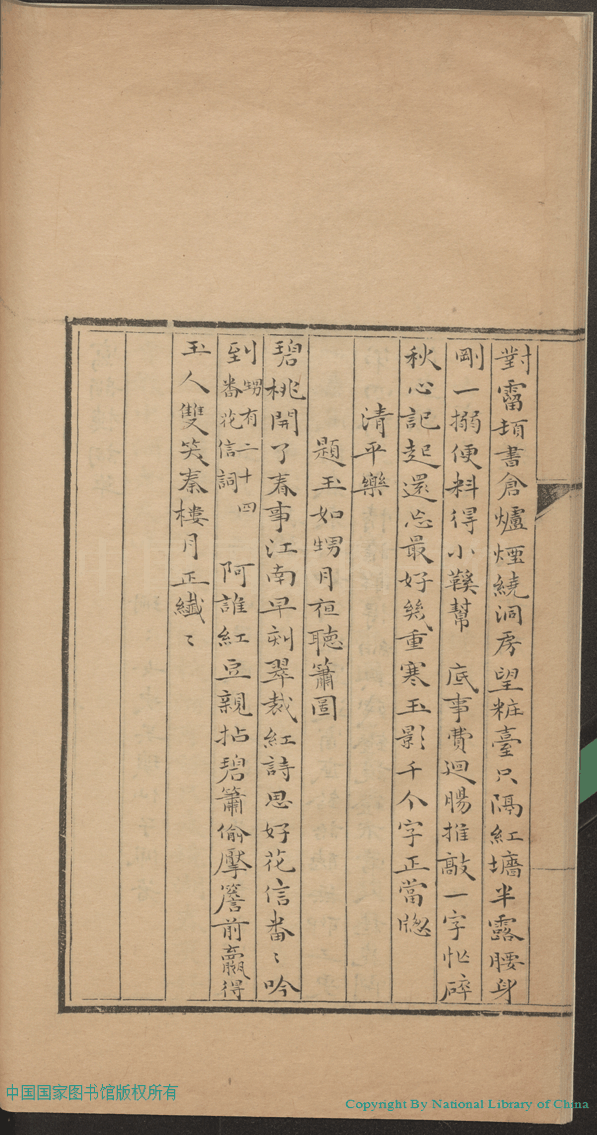 對霤書倉爐煙繞洞房望粧臺只隔紅墻半露腰身
剛一搦便料得小鞵幫　底事費迴腸推敲一字忙碎
秋心記起還忘最好幾重寒玉影千个字正當牕
清平樂
題玉如甥月亱聽簫圖
碧桃開了春事江南早刻翠裁紅詩思好花信番〻吟
到甥有二十四番花信詞　阿誰紅豆親拈碧簫偷擪簷前贏得
玉人雙笑秦樓月正纖〻
中国国家图书馆版权所有
Copyright By National Library of China